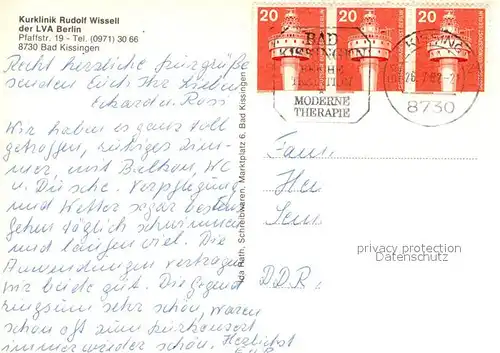 Kurklinik Rudolf Wissell
der LVA Berlin
Pfaffstr. 19 - Tel. (0971) 30 66
8730 Bad Kissingen
Recht herzliche Kurgrüße
senden Euch Ihr Lieben
Eckard u. Rosi
Wir haben es ganz toll
getroffen, ruhiges Zim-
mer, mit Balkon, WC
u. Dusche. Verpflegung
und Wetter sogar bestens
Gehen täglich schwimmen
und laufen viel. Die
Anwendungen vertragen
wir beide gut. Die Gegend
ringsum sehr schön, waren
schon oft zum Kurkonzert
immer wieder schön. Herzlichst
E.u.R.
Ada Rath, Schreibwaren, Marktplatz 6, Bad Kissingen
20 20 20
DEUTSCHE BUNDESPOST BERLIN
BAD
KISSINGEN
REICHE
TRADITION
MODERNE
THERAPIE
KISSINGEN
8730
Fam.
D.D.R.
privacy protection
Datenschutz